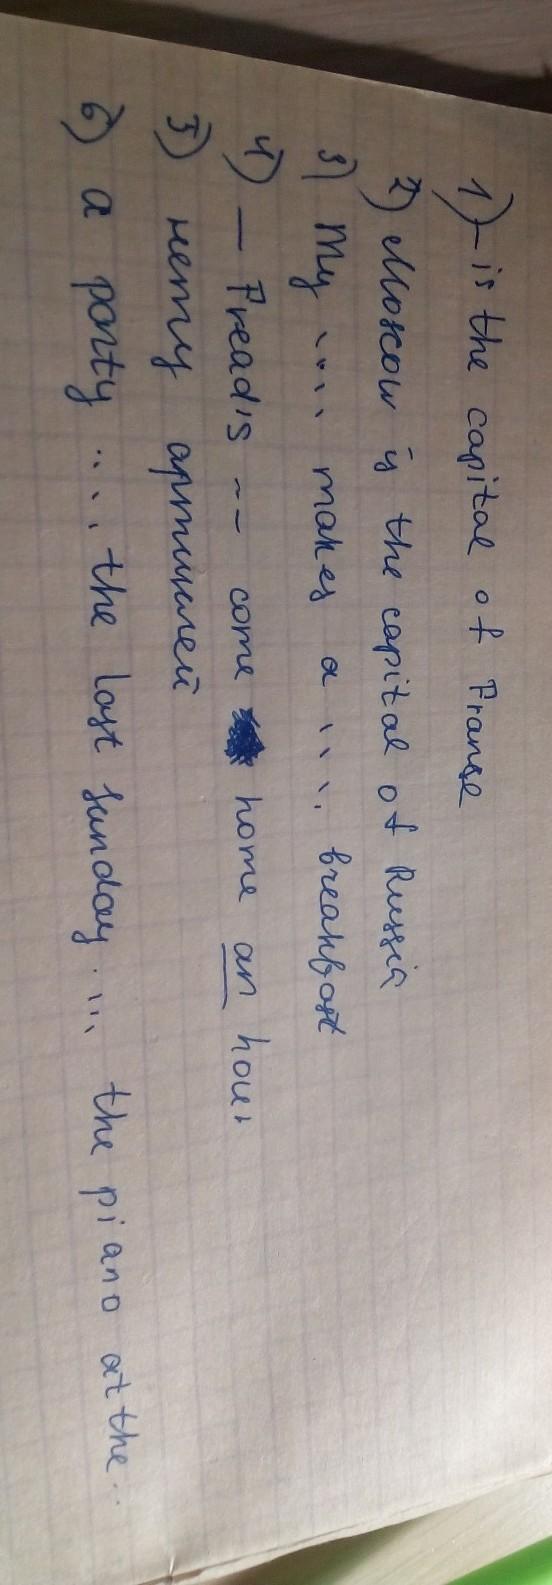 1) – is the capital of Franse
2) Moscow is the capital of Russia
3) My .... makes a .... breakfast
4) — Fread's -- come home an hour
5) нету артиклей
6) a party ... the last sunday ... the piano at the..